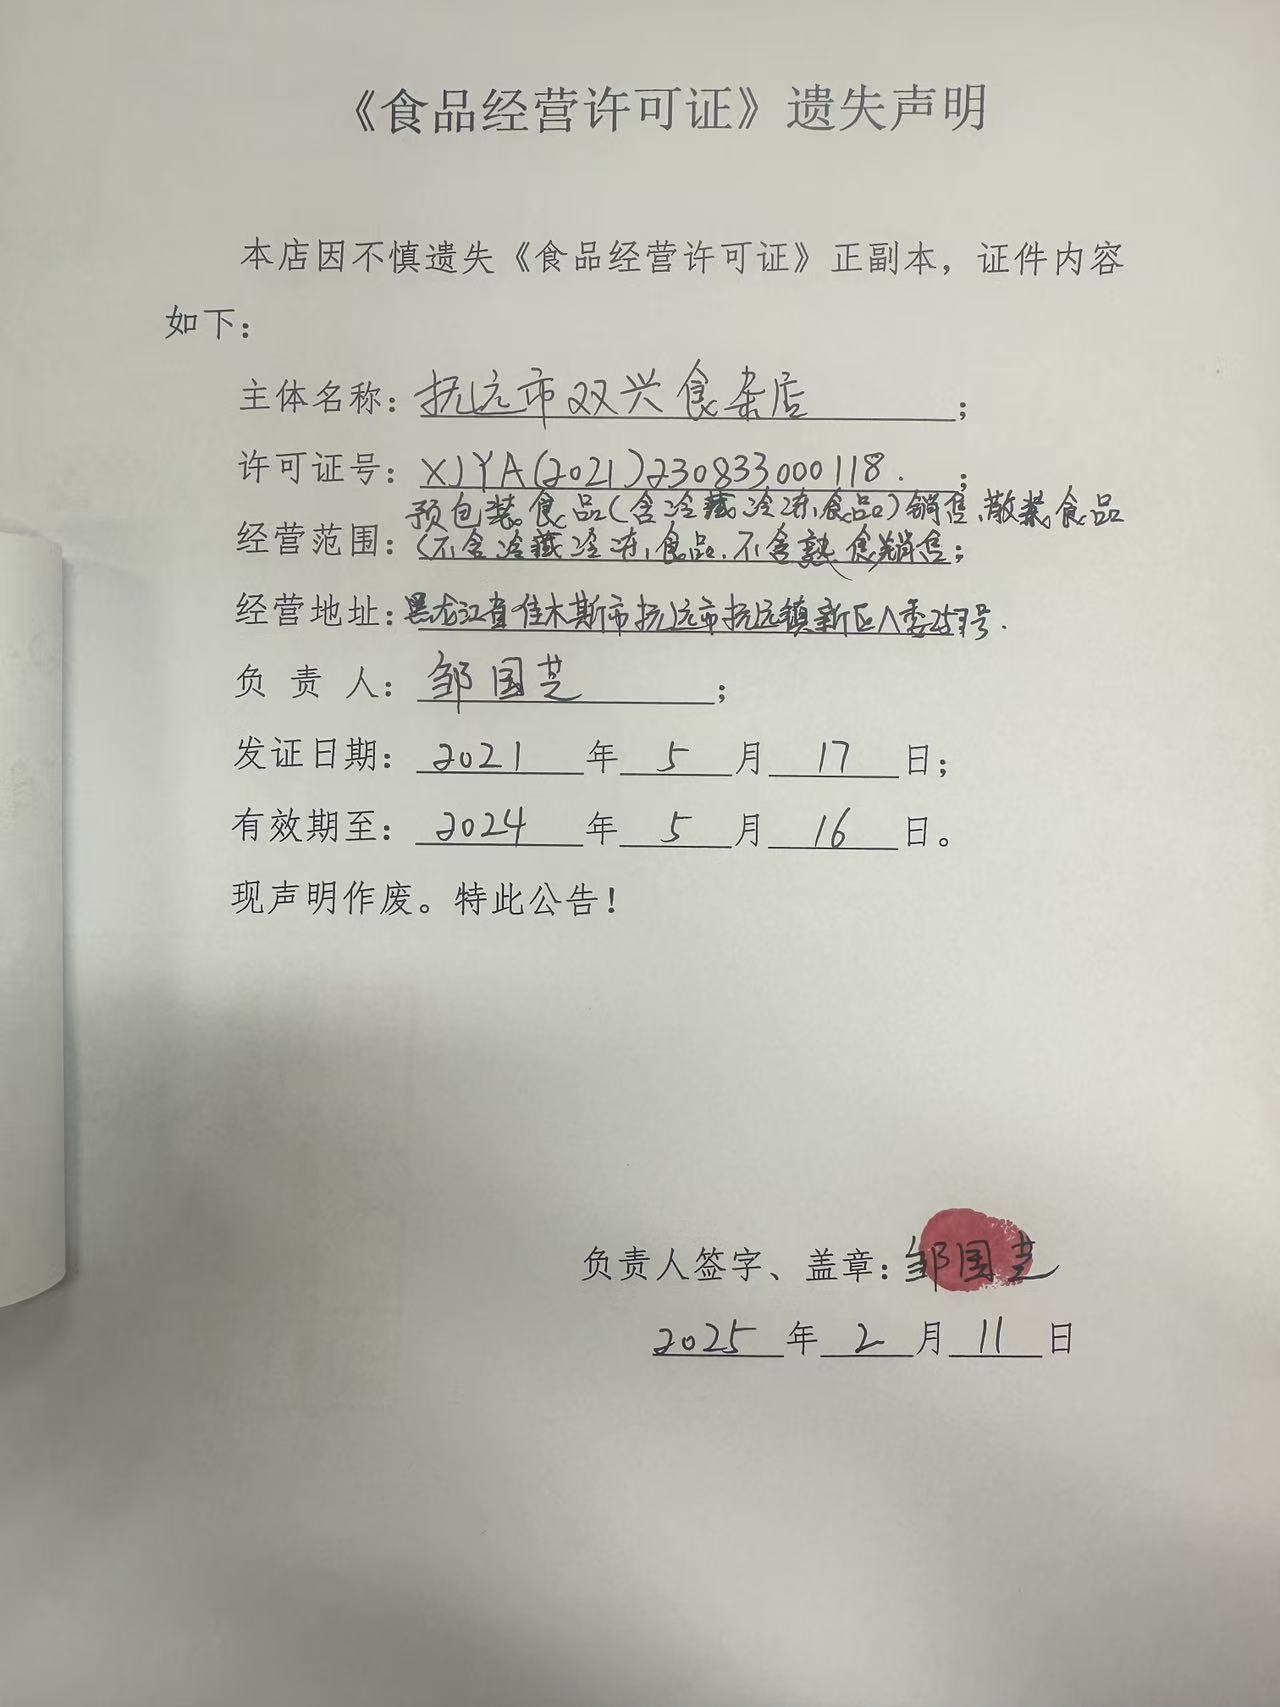 《食品经营许可证》遗失声明
本店因不慎遗失《食品经营许可证》正副本，证件内容
如下：
主体名称：抚远市双兴食杂店；
许可证号：XJYA(2021)230833000118.；
预包装食品(含冷藏冷冻食品)销售、散装食品
经营范围：(不含冷藏冷冻食品、不含熟食)销售；
经营地址：黑龙江省佳木斯市抚远市抚远镇新区八委257号.
负 责 人：邹国芝；
发证日期：2021年5月17日；
有效期至：2024年5月16日。
现声明作废。特此公告！
负责人签字、盖章：邹国芝
2025年2月11日